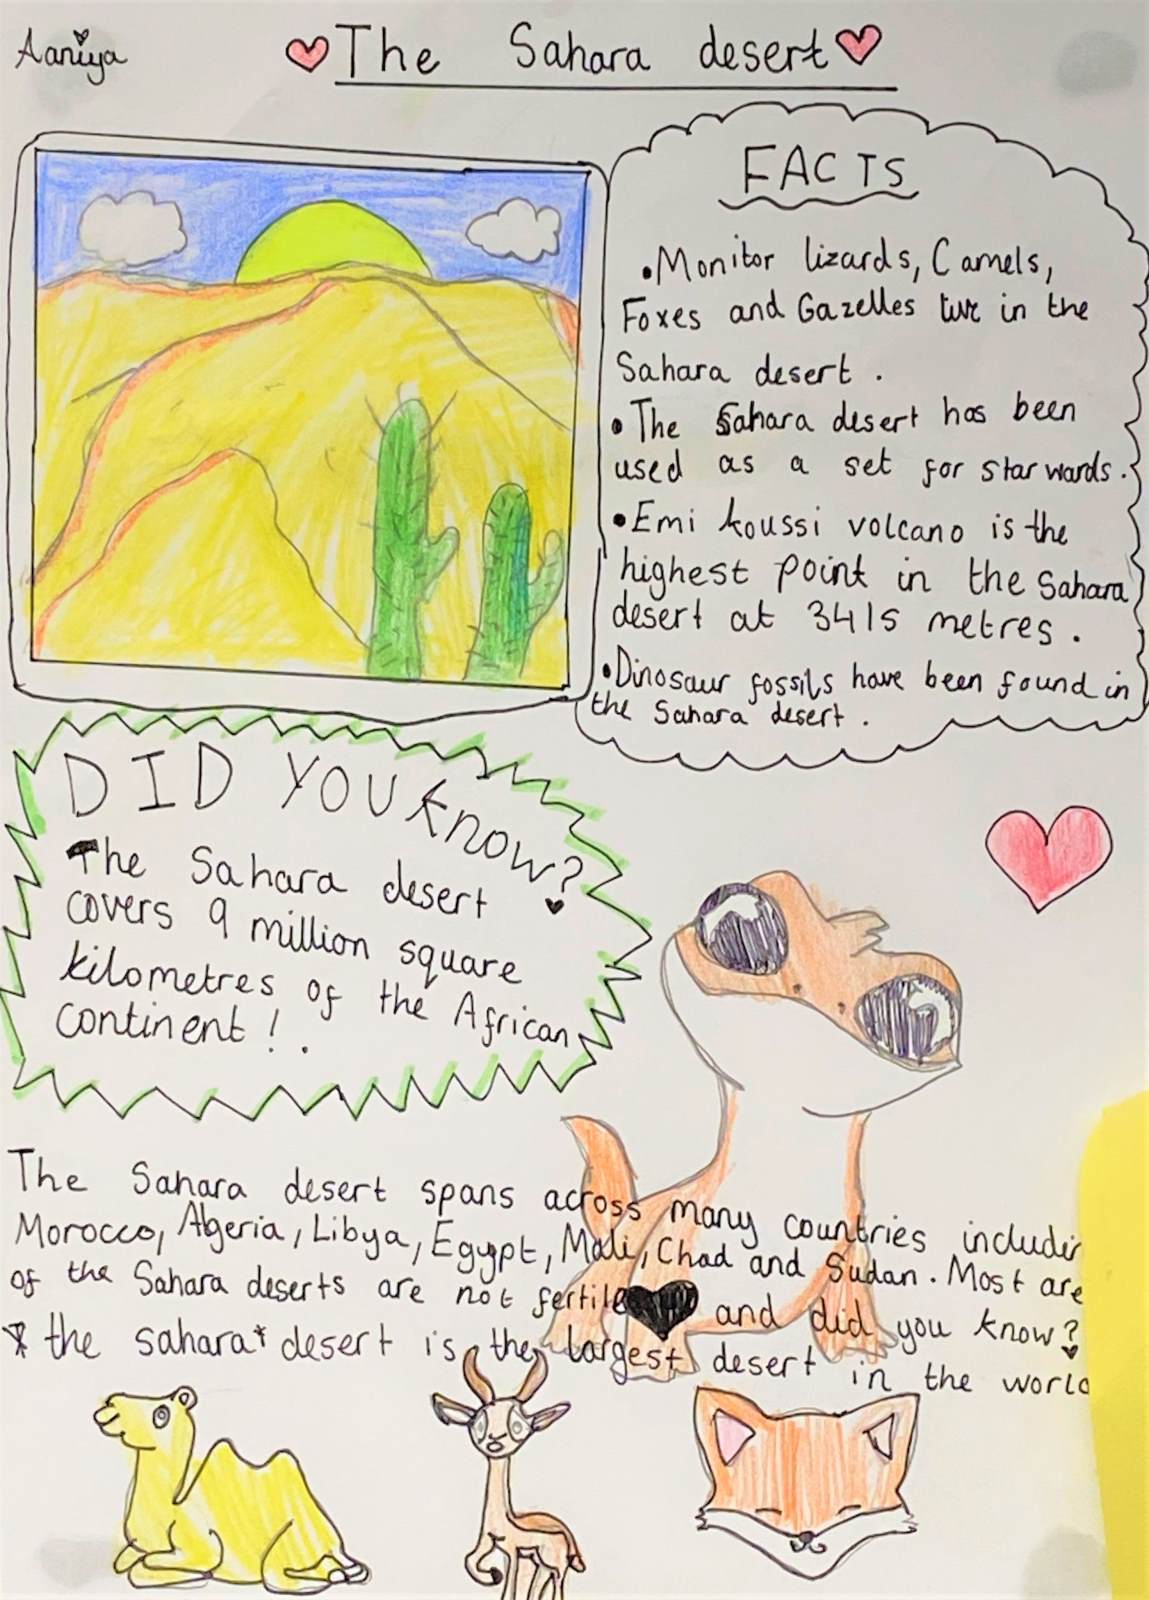 Aaniya
The Sahara desert
FACTS
•Monitor lizards, Camels,
Foxes and Gazelles live in the
Sahara desert.
•The Sahara desert has been
used as a set for star wards.
•Emi koussi volcano is the
highest point in the Sahara
desert at 3415 metres.
•Dinosaur fossils have been found in
the Sahara desert.
DID YOU know?
The Sahara desert
covers 9 million square
kilometres of the African
continent!.
The Sahara desert spans across many countries includin
Morocco, Algeria, Libya, Egypt, Mali, Chad and Sudan. Most are
of the Sahara deserts are not fertile and did you know?
* the sahara* desert is the largest desert in the world